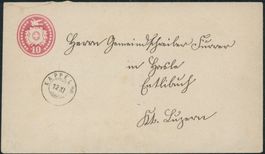 10
Herrn Gemeindschreiber Furrer
in Hasle
Entlibuch
Kt. Luzern
KAPPEL